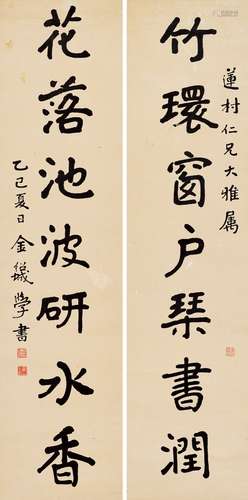 蓮村仁兄大雅属
竹環窗户琹書潤
花落池波研水香
乙巳夏日金城學書